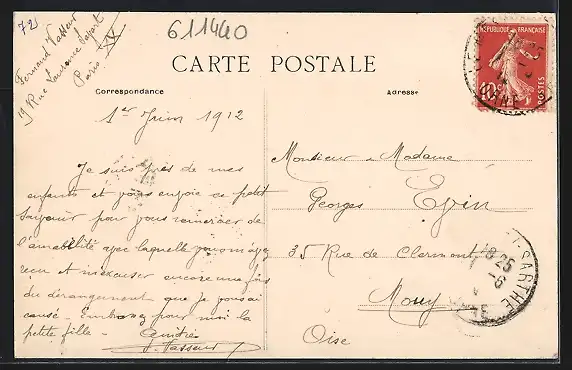 72
611440
Fernand Vasseur
19 Rue Laurence Savart
Paris XX
CARTE POSTALE
Correspondance
Adresse
RÉPUBLIQUE FRANÇAISE
10c
POSTES
1er Juin 1912
Je suis près de mes
enfants et vous envoie ce petit
souvenir pour vous remercier de
l'amabilité avec laquelle vous m'avez
reçu et m'excuser encore une fois
du dérangement que je vous ai
causé. Embrassez pour moi la
petite fille.
Vasseur
Monsieur & Madame
Georges Evin
35 Rue de Clermont
Mouy
Oise
18 25
SARTHE